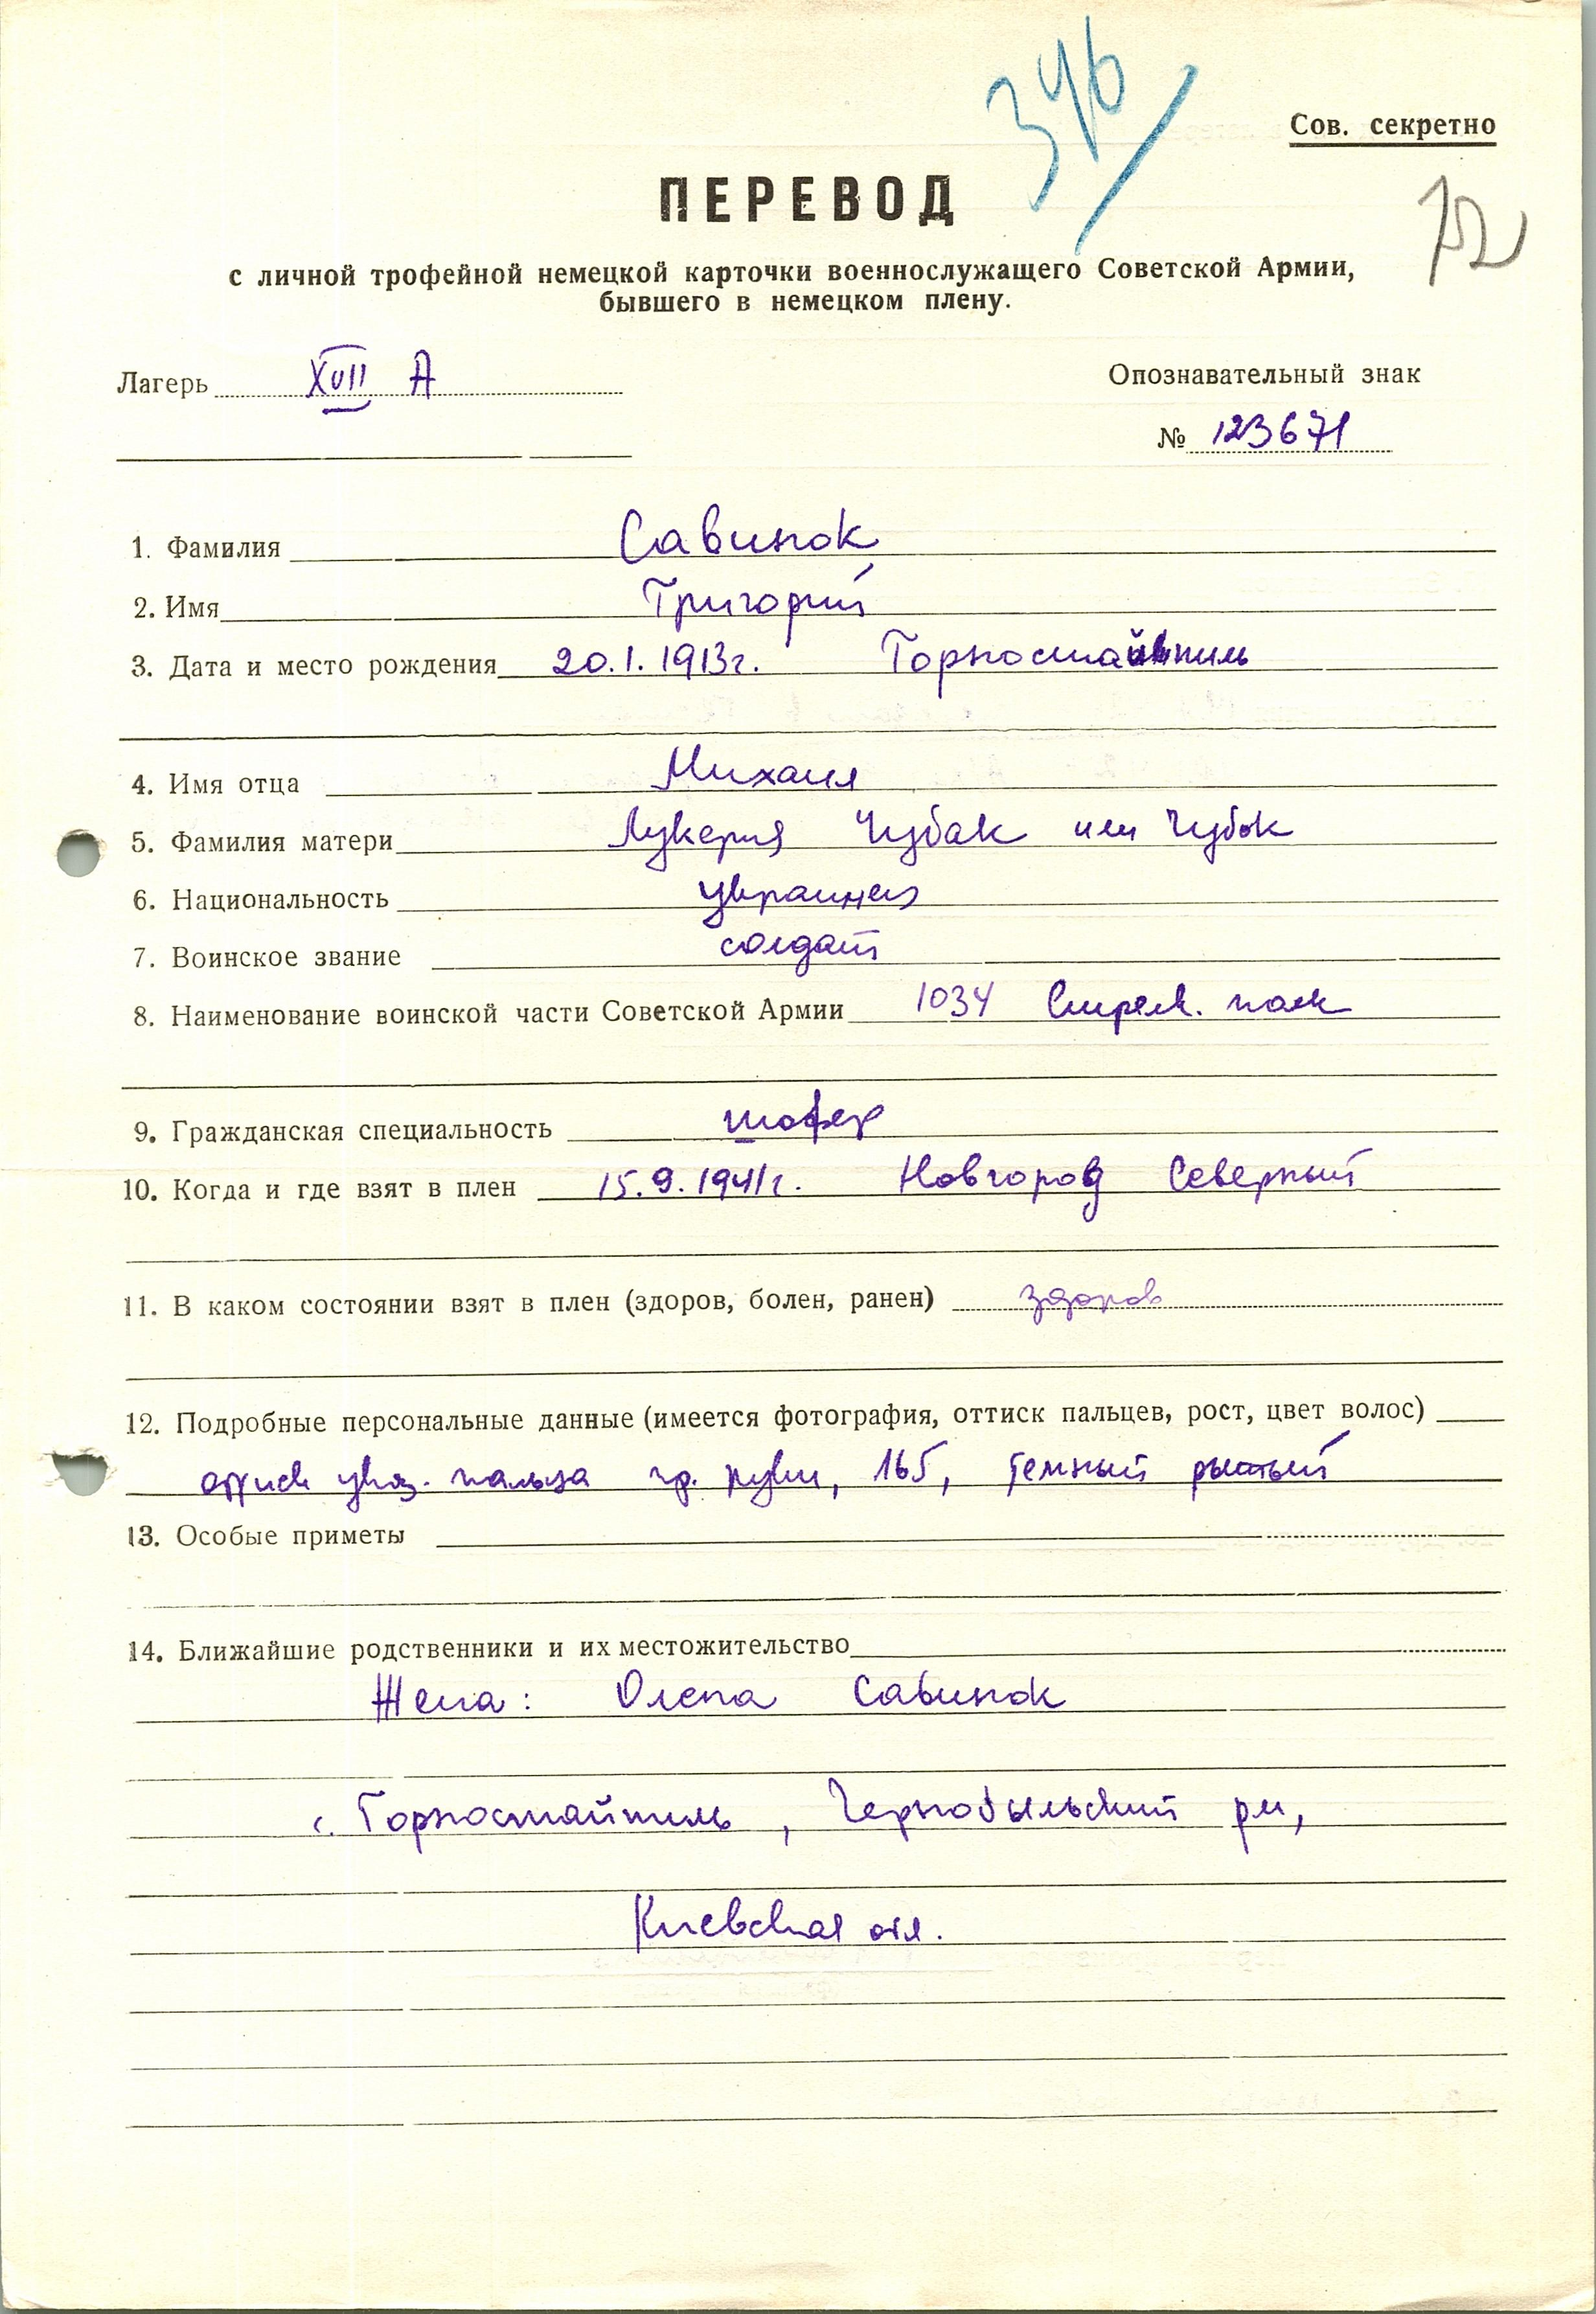 346
Сов. секретно
ПЕРЕВОД
72
с личной трофейной немецкой карточки военнослужащего Советской Армии,
бывшего в немецком плену.
Лагерь XVII А
Опознавательный знак
№ 123671
1. Фамилия Савинок
2. Имя Григорий
3. Дата и место рождения 20.1.1913г. Горностайпиль
4. Имя отца Михаил
5. Фамилия матери Лукерия Чубак или Чубок
6. Национальность украинец
7. Воинское звание солдат
8. Наименование воинской части Советской Армии 1034 Стрелк. полк
9. Гражданская специальность шофер
10. Когда и где взят в плен 15.9.1941г. Новгород Северный
11. В каком состоянии взят в плен (здоров, болен, ранен) здоров
12. Подробные персональные данные (имеется фотография, оттиск пальцев, рост, цвет волос)
оттиск указ. пальца пр. руки, 165, темный рыжый
13. Особые приметы
14. Ближайшие родственники и их местожительство
Жена: Олена Савинок
с. Горностайпиль, Чернобыльский рн,
Киевская обл.